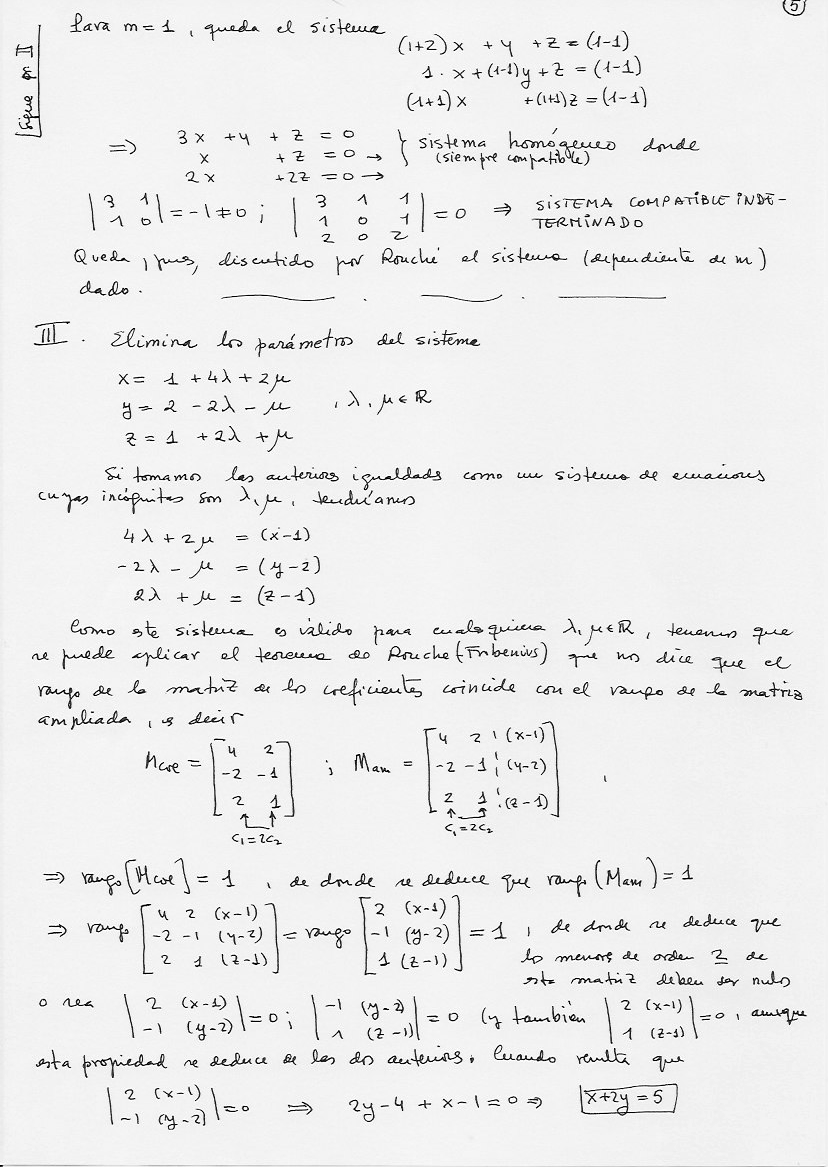 5
Sigue en II
Para m=1, queda el sistema
(1+2)x + y + z = (1-1)
1·x + (1-1)y + z = (1-1)
(1+1)x + (1+1)z = (1-1)
⇒ 3x + y + z = 0
x + z = 0 →
2x + 2z = 0 →
} sistema homógeneo donde
(siempre compatible)
|3 1; 1 0| = -1 ≠ 0 ; |3 1 1; 1 0 1; 2 0 2| = 0 ⇒ SISTEMA COMPATIBLE INDE-
TERMINADO
Queda, pues, discutido por Rouché el sistema (dependiente de m)
dado.
III. Elimina los parámetros del sistema
x = 1 + 4λ + 2μ
y = 2 - 2λ - μ , λ, μ ∈ ℝ
z = 1 + 2λ + μ
Si tomamos las anteriores igualdades como un sistema de ecuaciones
cuyas incógnitas son λ, μ, tendríamos
4λ + 2μ = (x-1)
-2λ - μ = (y-2)
2λ + μ = (z-1)
Como este sistema es válido para cualesquiera λ, μ ∈ ℝ, tenemos que
se puede aplicar el teorema de Rouche (Fribenius) que nos dice que el
rango de la matriz de los coeficientes coincide con el rango de la matriz
ampliada, es decir
Mcoe = [4 2; -2 -1; 2 1] ; Mam = [4 2 ¦ (x-1); -2 -1 ¦ (y-2); 2 1 ¦ (z-1)] ,
C₁=2C₂ C₁=2C₂
⇒ rango[Mcoe] = 1 , de donde se deduce que rango(Mam) = 1
⇒ rango [4 2 (x-1); -2 -1 (y-2); 2 1 (z-1)] = rango [2 (x-1); -1 (y-2); 1 (z-1)] = 1 , de donde se deduce que
los menores de orden 2 de
esta matriz deben ser nulos
o sea |2 (x-1); -1 (y-2)| = 0 ; |-1 (y-2); 1 (z-1)| = 0 (y también |2 (x-1); 1 (z-1)| = 0 , aunque
esta propiedad se deduce de las dos anteriores. Cuando resulta que
|2 (x-1); -1 (y-2)| = 0 ⇒ 2y - 4 + x - 1 = 0 ⇒ x+2y = 5